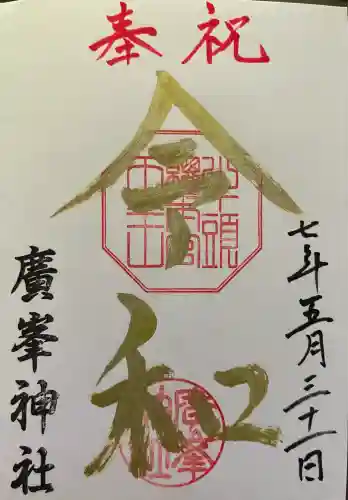 奉祝
令和
七年五月三十一日
廣峯神社